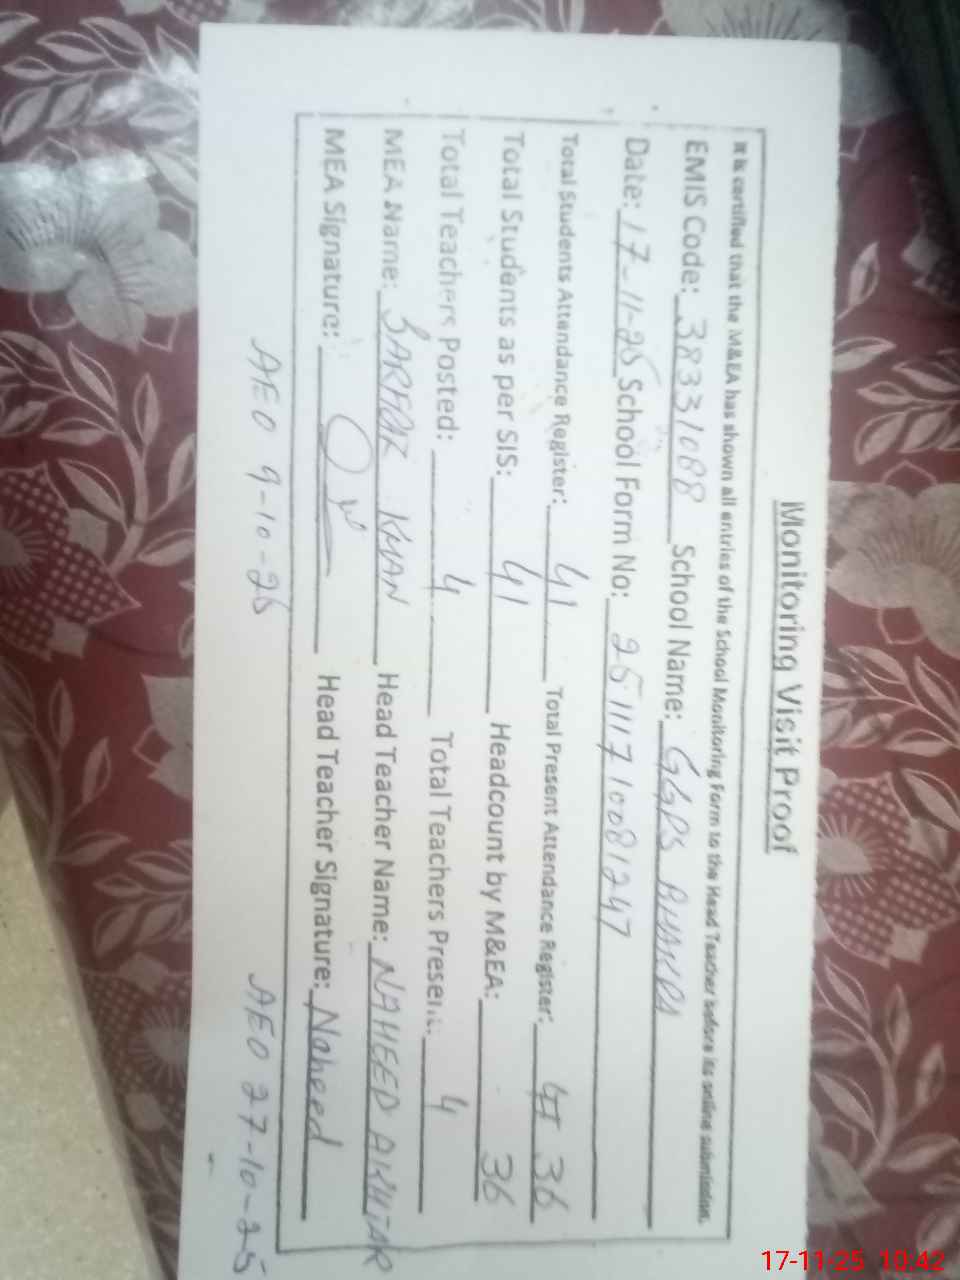 Monitoring Visit Proof
It is certified that the M&EA has shown all entries of the School Monitoring Form to the Head Teacher before its online submission.
EMIS Code: 38331088 School Name: GGPS BHAKRA
Date: 17-11-25 School Form No: 25111710081247
Total Students Attendance Register: 41 Total Present Attendance Register: 36
Total Students as per SIS: 41 Headcount by M&EA: 36
Total Teachers Posted: 4 Total Teachers Present: 4
MEA Name: SARFRAZ KHAN Head Teacher Name: NAHEED AKHTAR
MEA Signature: Head Teacher Signature: Naheed
AEO 9-10-25 AEO 27-10-25
17-11-25 10:42